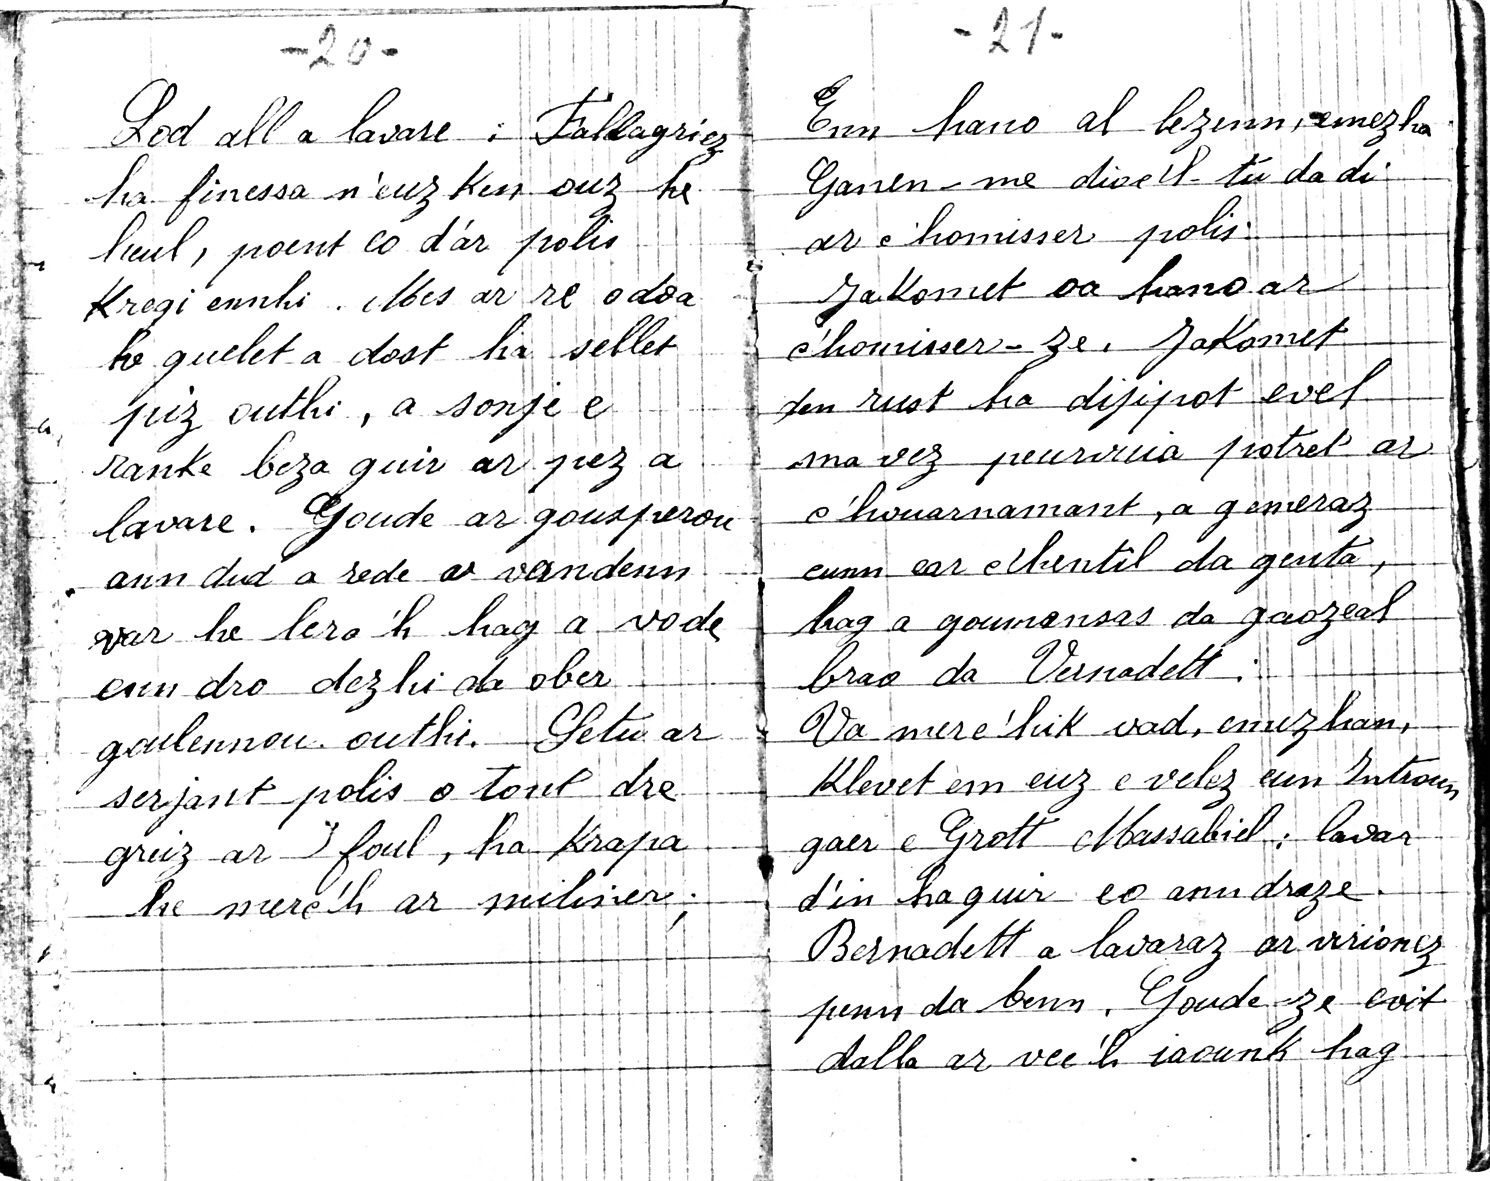 -20-
Lod all a lavare : Fallagriez
ha finessa n'euz ken ouz he
heul, poent eo d'ar polis
Kregi ennhi. Mes ar re o doa
he guelet a dost ha sellet
piz outhi, a sonje e
ranke beza guir ar pez a
lavare. Goude ar gousperou
ann dud a rede a vandenn
var he lerc'h hag a vode
enn dro dezhi da ober
goulennou outhi. Setu ar
serjant polis o tont dre
greiz ar foul, ha krapa
he merc'h ar miliner;
-21-
Enn hano al lezenn, emezha
Ganen-me dioc'h-tu da di
ar c'homisser polis.
Jakomet oa hano ar
c'homisser-ze. Jakomet
den rust ha dijipot evel
ma vez peurvuia potret ar
c'houarnamant, a gemeraz
eunn ear chentil da genta,
hag a goumansas da gaozeal
brao da Vernadett :
Va merc'hik vad, emezhan,
Klevet em euz e velez eun Introun
gaer e Grott Massabiel ; lavar
d'in ha guir eo ann draze.
Bernadett a lavaraz ar virionez
penn da benn. Goude-ze evit
dalla ar verc'h iaounk hag